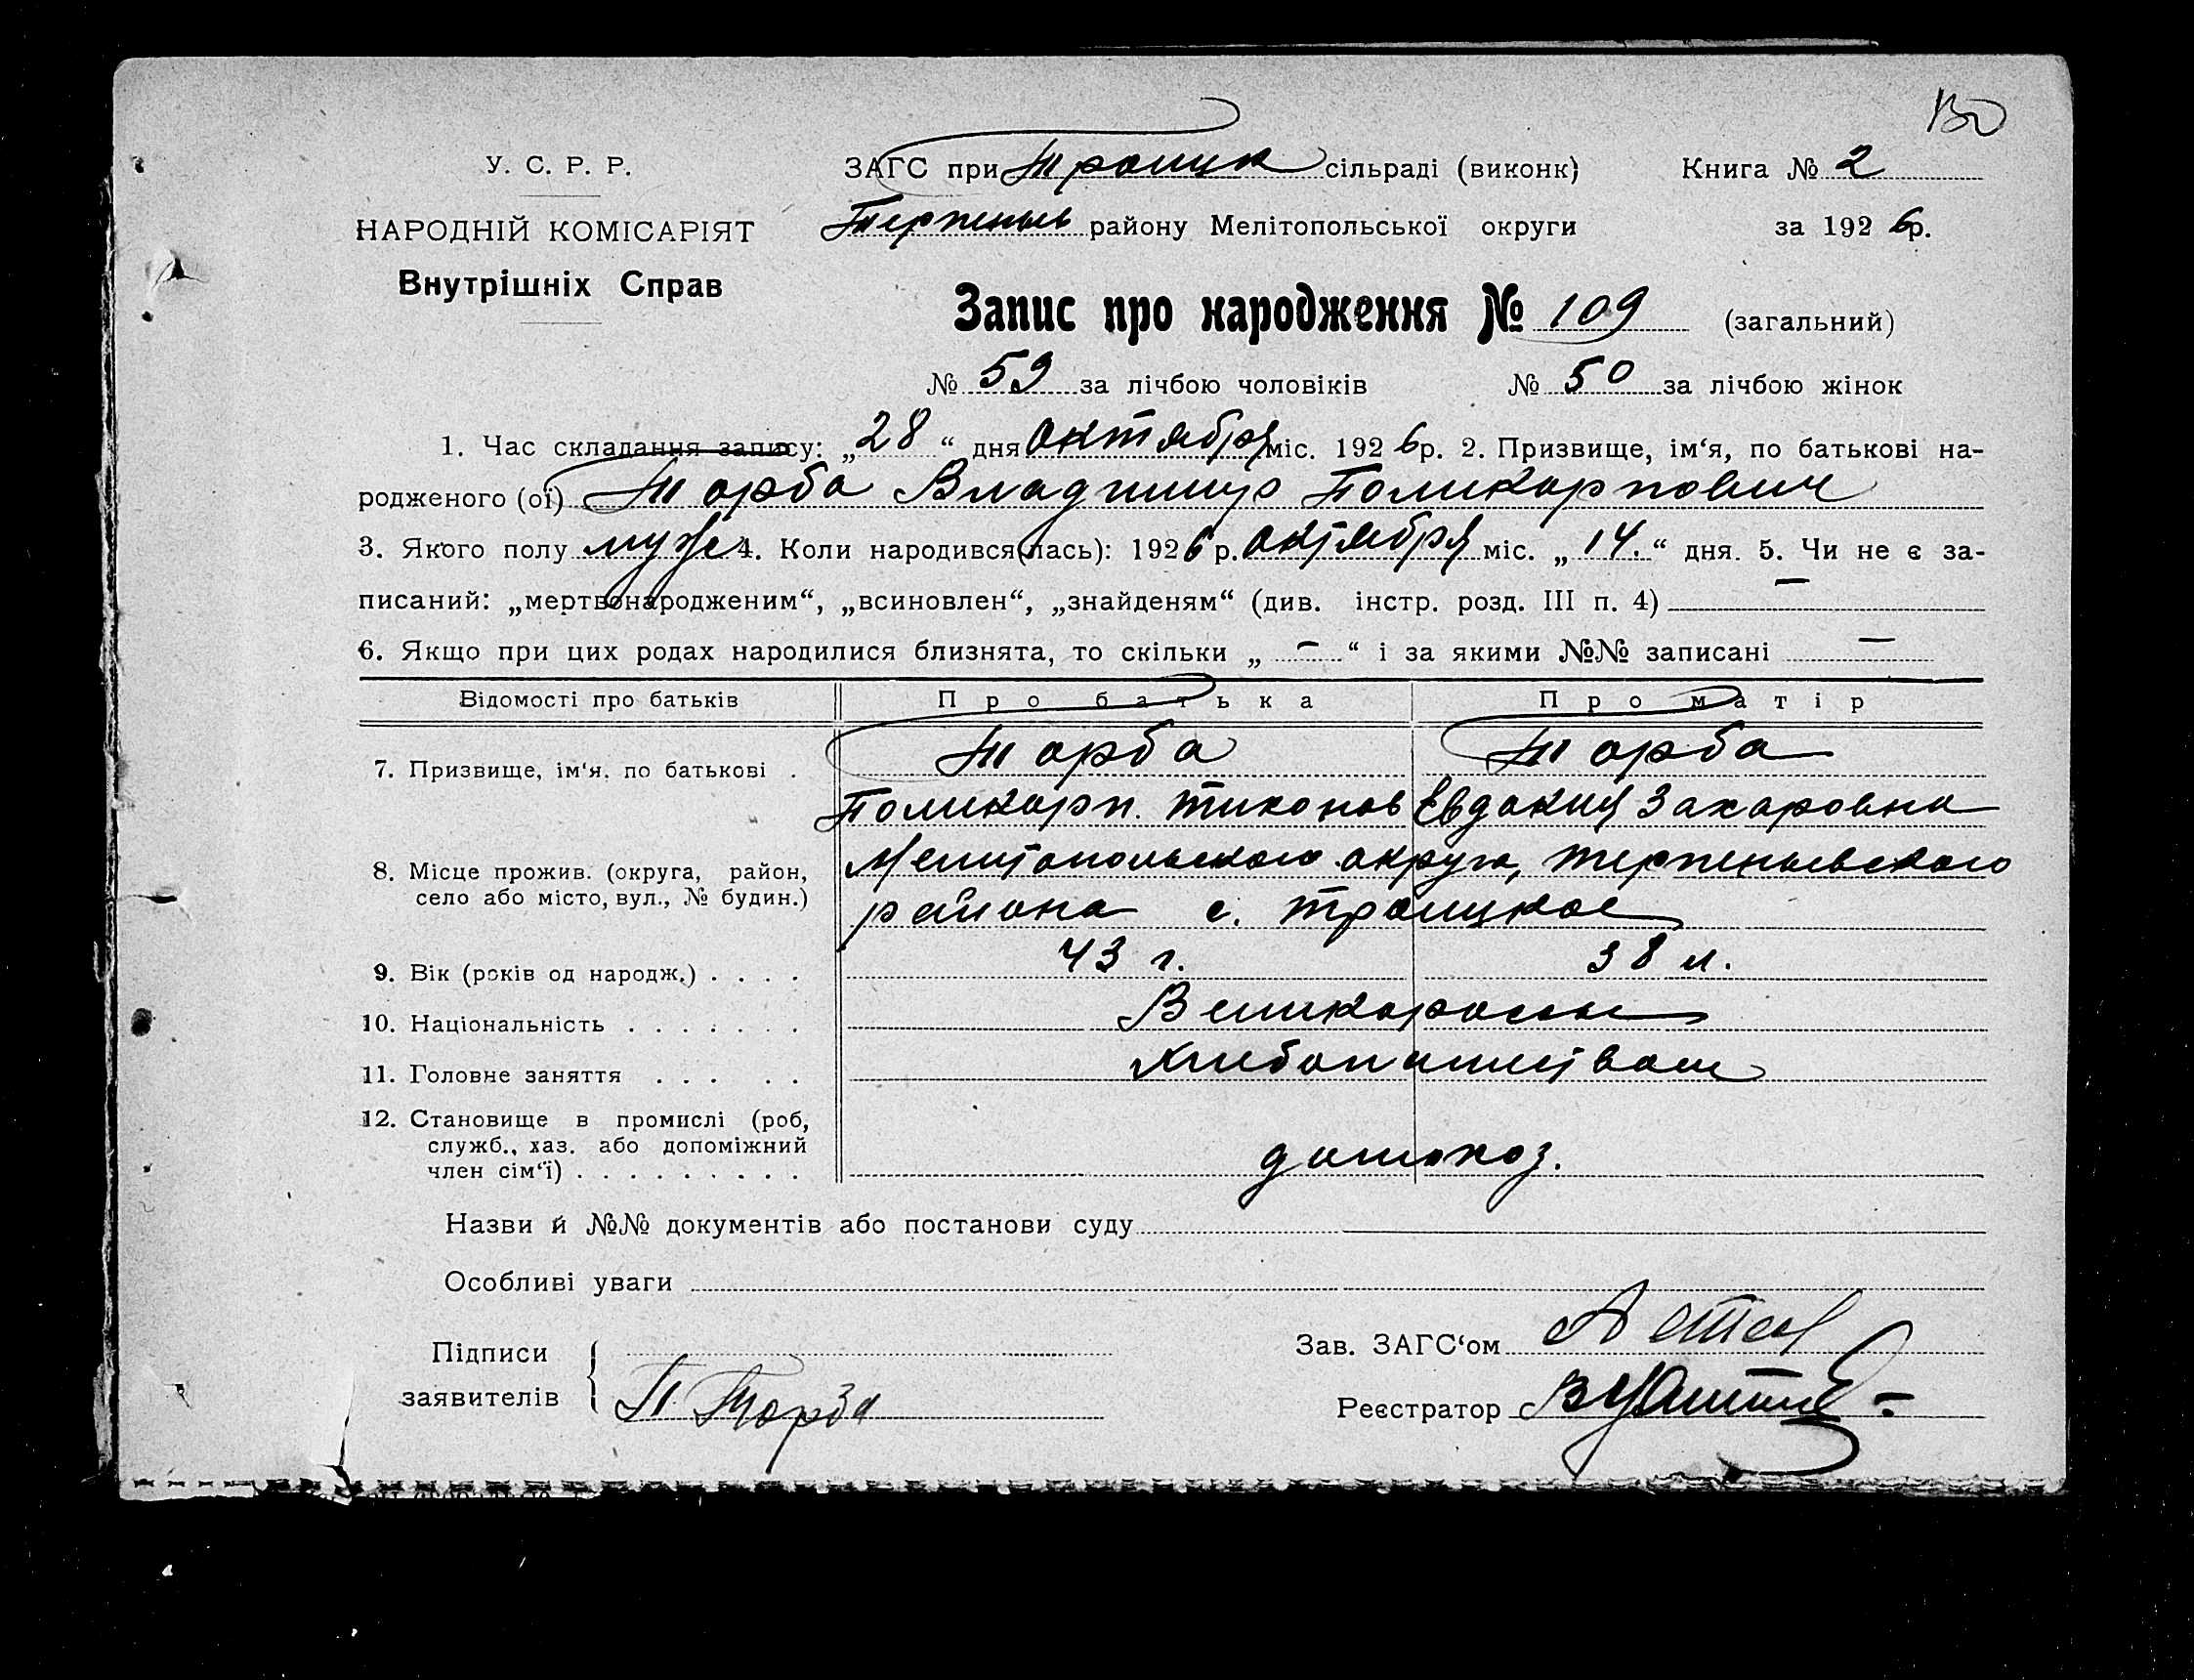 130
У. С. Р. Р.
ЗАГС при Троицк сільраді (виконк)
Книга № 2
НАРОДНІЙ КОМІСАРІЯТ
Терпеньев району Мелітопольської округи
за 1926 р.
Внутрішніх Справ
Запис про народження № 109 (загальний)
№ 59 за лічбою чоловіків № 50 за лічбою жінок
1. Час складання запису: „28“ дня октября міс. 1926 р. 2. Призвище, ім‘я, по батькові на-
родженого (ої) Торба Владимир Поликарпович
3. Якого полу муж 4. Коли народився(лась): 1926 р. октября міс. „14.“ дня. 5. Чи не є за-
писаний: „мертвонародженим“, „всиновлен“, „знайденям“ (див. інстр. розд. III п. 4) —
6. Якщо при цих родах народилися близнята, то скільки „ — “ і за якими №№ записані —
Відомості про батьків Про батька Про матір
Торба Торба
7. Призвище, ім‘я. по батькові .
Поликарп. Тихонов Евдокия Захаровна
8. Місце прожив. (округа, район, Мелитопольского округа, Терпеньевского
село або місто, вул., № будин.) района с. Троицкое
9. Вік (років од народж.) . . . . 43 г. 38 л.
10. Національність . . . . . . . Великороссы
11. Головне заняття . . . . . Хлебопашеством
12. Становище в промислі (роб,
служб., хаз. або допоміжний домохоз.
член сім‘ї) . . . . . . . . .
Назви й №№ документів або постанови суду
Особливі уваги
Підписи
Зав. ЗАГС‘ом
заявителів П Торба
Реєстратор